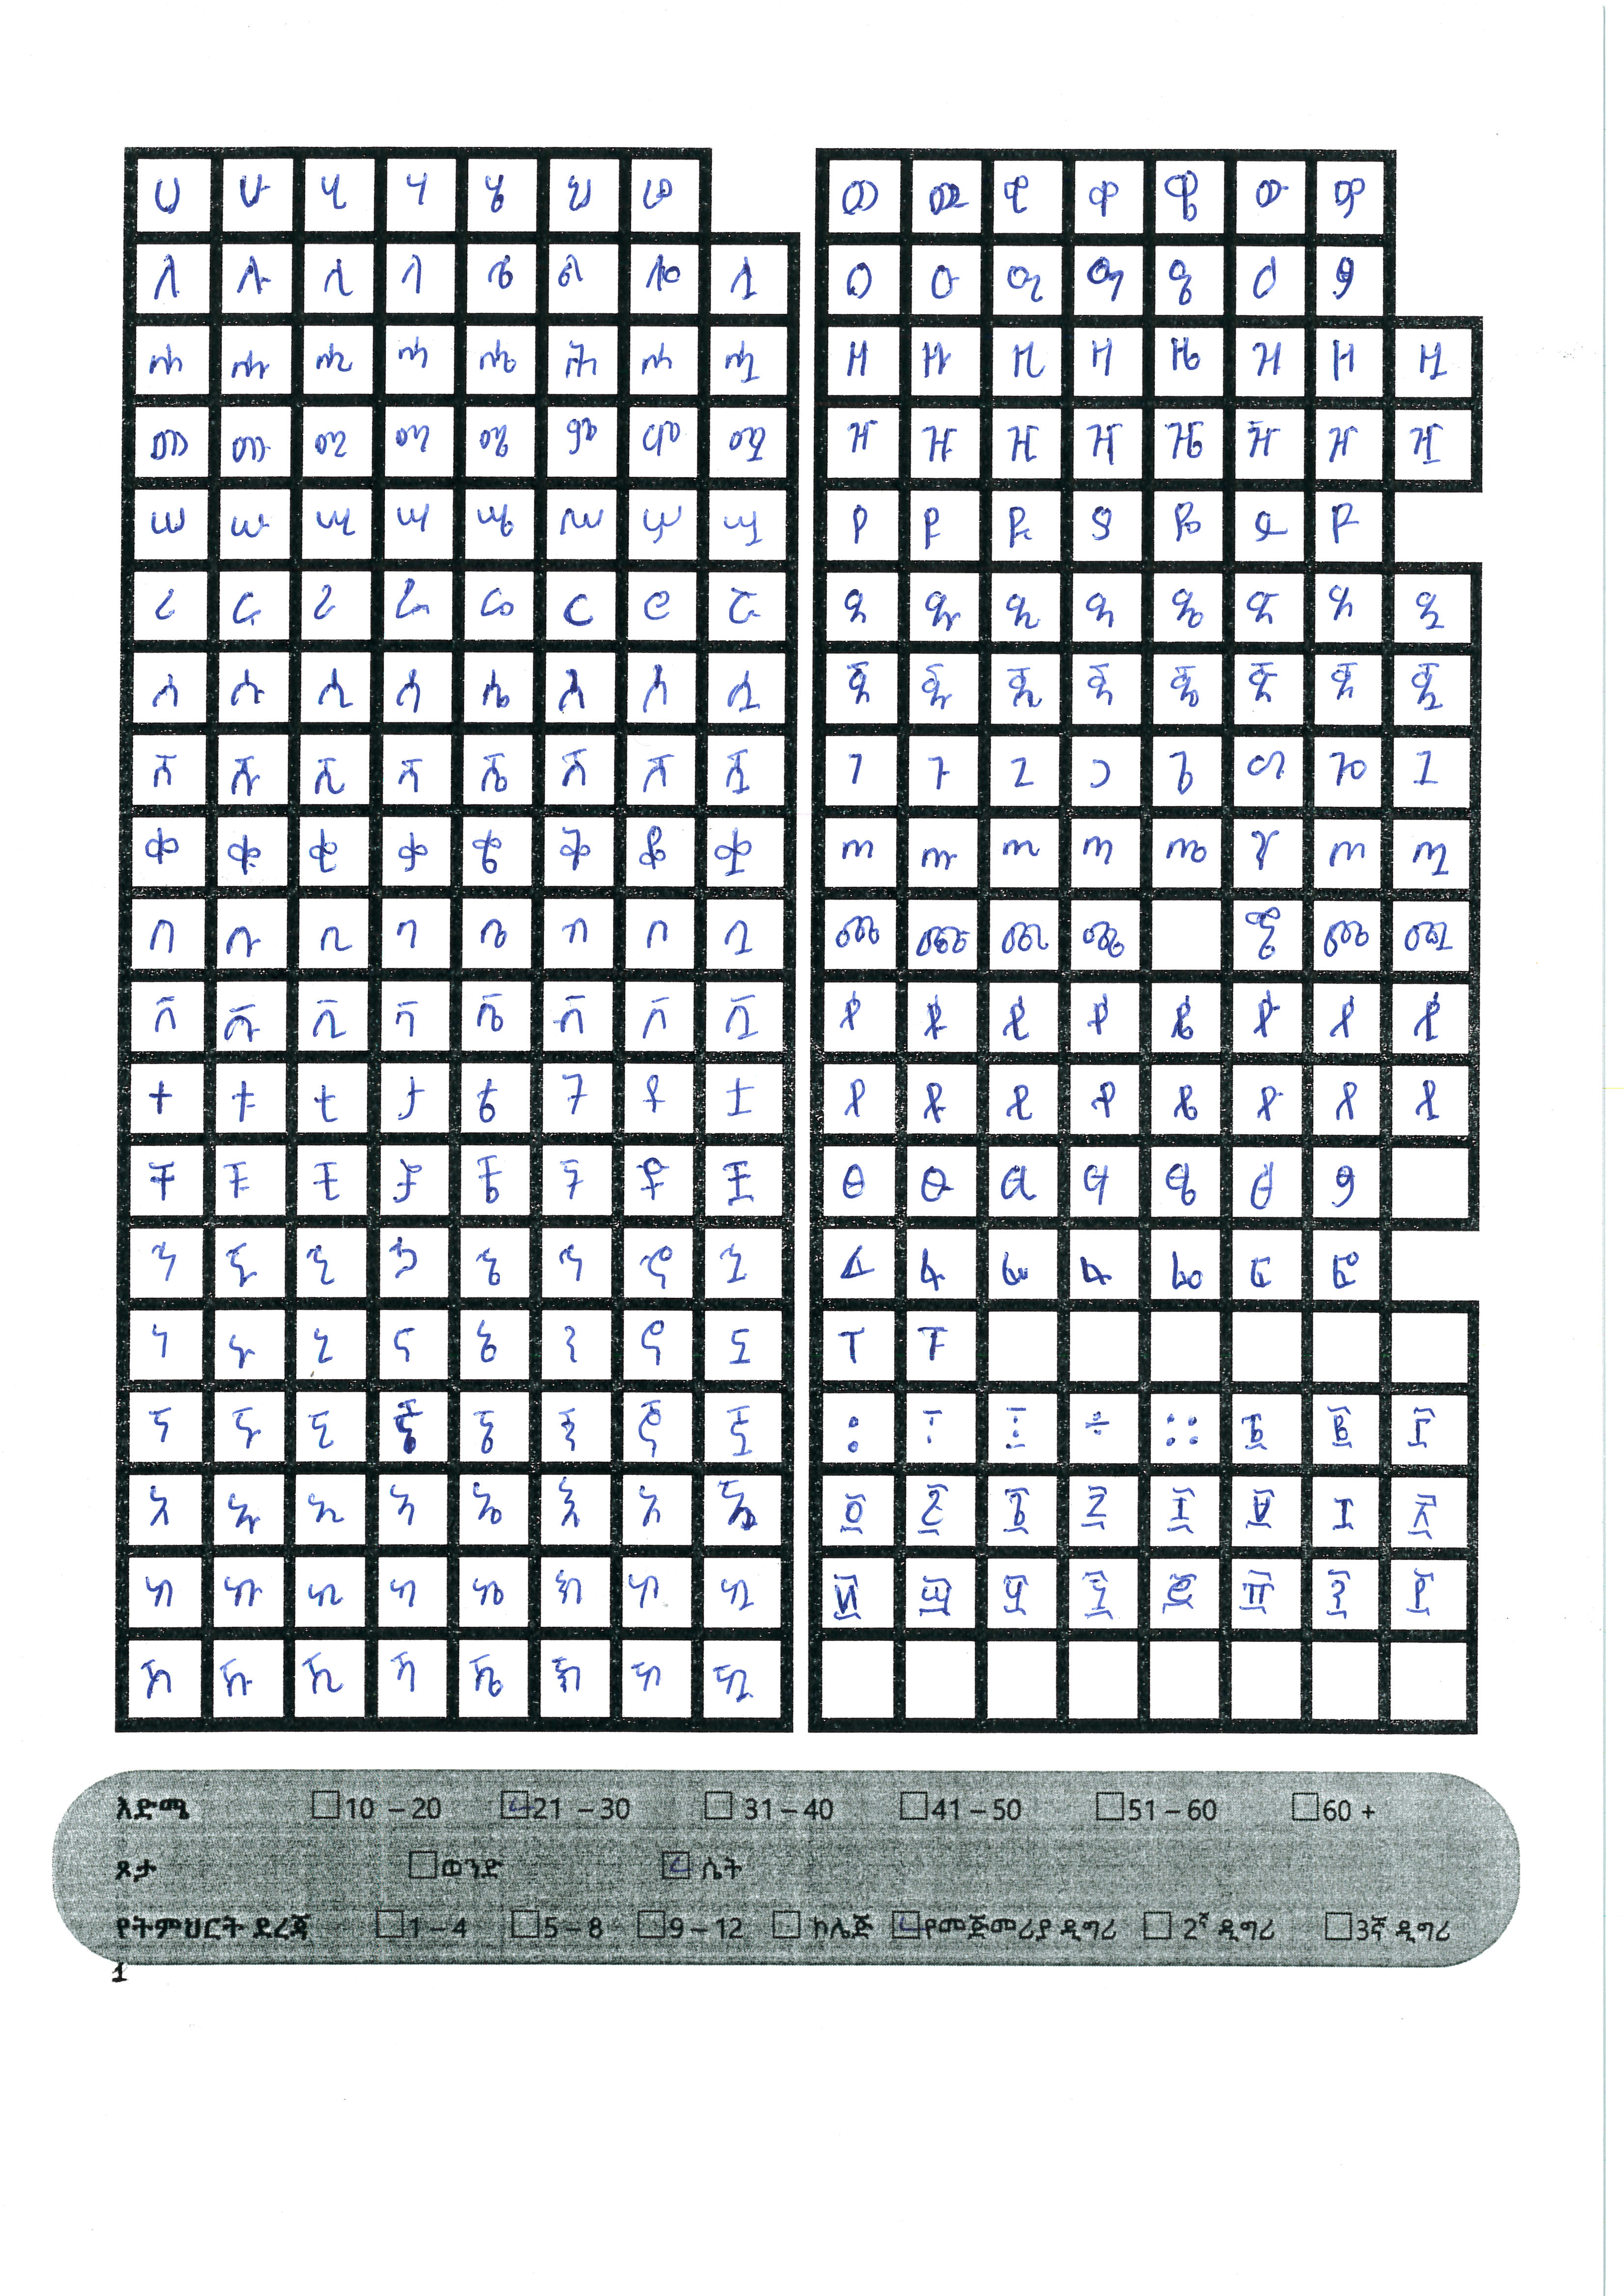 ሀ ሁ ሂ ሃ ሄ ህ ሆ
ለ ሉ ሊ ላ ሌ ል ሎ ሏ
ሐ ሑ ሒ ሓ ሔ ሕ ሖ ሗ
መ ሙ ሚ ማ ሜ ም ሞ ሟ
ሠ ሡ ሢ ሣ ሤ ሥ ሦ ሧ
ረ ሩ ሪ ራ ሬ ር ሮ ሯ
ሰ ሱ ሲ ሳ ሴ ስ ሶ ሷ
ሸ ሹ ሺ ሻ ሼ ሽ ሾ ሿ
ቀ ቁ ቂ ቃ ቄ ቅ ቆ ቋ
በ ቡ ቢ ባ ቤ ብ ቦ ቧ
ቨ ቩ ቪ ቫ ቬ ቭ ቮ ቯ
ተ ቱ ቲ ታ ቴ ት ቶ ቷ
ቸ ቹ ቺ ቻ ቼ ች ቾ ቿ
ኀ ኁ ኂ ኃ ኄ ኅ ኆ ኋ
ነ ኑ ኒ ና ኔ ን ኖ ኗ
ኘ ኙ ኚ ኛ ኜ ኝ ኞ ኟ
አ ኡ ኢ ኣ ኤ እ ኦ ኧ
ከ ኩ ኪ ካ ኬ ክ ኮ ኳ
ኸ ኹ ኺ ኻ ኼ ኽ ኾ ዃ
ወ ዉ ዊ ዋ ዌ ው ዎ
ዐ ዑ ዒ ዓ ዔ ዕ ዖ
ዘ ዙ ዚ ዛ ዜ ዝ ዞ ዟ
ዠ ዡ ዢ ዣ ዤ ዥ ዦ ዧ
የ ዩ ዪ ያ ዬ ይ ዮ
ደ ዱ ዲ ዳ ዴ ድ ዶ ዷ
ጀ ጁ ጂ ጃ ጄ ጅ ጆ ጇ
ገ ጉ ጊ ጋ ጌ ግ ጎ ጓ
ጠ ጡ ጢ ጣ ጤ ጥ ጦ ጧ
ጨ ጩ ጪ ጫ ጭ ጮ ጯ
ጰ ጱ ጲ ጳ ጴ ጵ ጶ ጷ
ጸ ጹ ጺ ጻ ጼ ጽ ጾ ጿ
ፀ ፁ ፂ ፃ ፄ ፅ ፆ
ፈ ፉ ፊ ፋ ፌ ፍ ፎ
ፐ ፑ
፡ ፣ ፤ ÷ ። ፩ ፪ ፫
፬ ፭ ፮ ፯ ፰ ፱ ፲ ፳
፴ ፵ ፶ ፷ ፸ ፹ ፺ ፻
እድሜ 10 – 20 21 – 30 31 – 40 41 – 50 51 – 60 60 +
ጾታ ወንድ ሴት
የትምህርት ደረጃ 1 – 4 5 – 8 9 – 12 ኮሌጅ የመጅመሪያ ዲግሪ 2ኛ ዲግሪ 3ኛ ዲግሪ
1